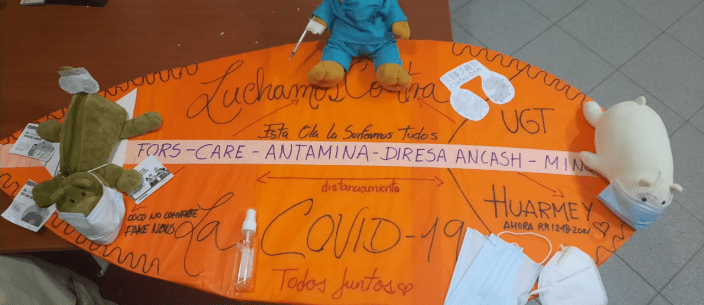 Luchamos Contra
UGT
Esta Ola la Surfeamos Todos
FORS-CARE-ANTAMINA-DIRESA ANCASH-MIN
distanciamiento
HUARMEY
COCO NO COMPARTE
FAKE NEWS
La COVID-19
Todos Juntos